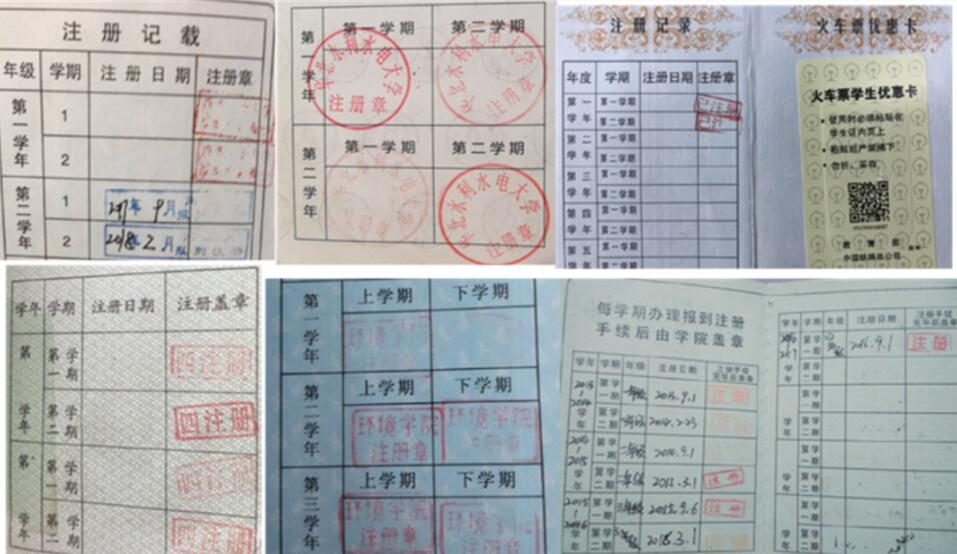 注册记载
年级 学期 注册日期 注册章
第一学年 1
2
第二学年 1 年 9月
2 2018年2月
第一学期 第二学期
第一学年
华北水利水电大学 注册章
华北水利水电大学 注册章
第一学期 第二学期
第二学年
华北水利水电大学 注册章
注册记录
年度 学期 注册日期 注册章
第一学年 第一学期 已注册
第二学期 已注
第二学年 第一学期
第二学期
第三学年 第一学期
第二学期
第四学年 第一学期
第二学期
第五学年 第一学期
第二学期
火车票优惠卡
火车票学生优惠卡
使用时必须粘贴在
学生证内页上
教育部
学年 学期 注册日期 注册盖章
第 学年 第一学期 四注册
第二学期 四注册
第 学年 第一学期 四注册
第二学期 四注册
上学期 下学期
第一学年 环境学院
上学期 下学期
第二学年 环境学院 注册章 环境学院 注册章
上学期 下学期
第三学年 环境学院 注册章 环境学院
每学期办理报到注册
手续后由学院盖章
学年 学期 年级 注册日期 注册手续完毕后盖章
2013 第一学期 一年级 2013.9.1 注册
第二学期 2014.2.23
2014 2015 第一学期
第二学期 3.1 注册
2015 2016 第一学期 2015.9.6 注册
第二学期 3.1
学年 学期 年级 注册日期 注册手续完毕后盖章
第一学期 2016.9.1 注册
第二学期
学年 第一学期
第二学期
学年 第一学期
第二学期